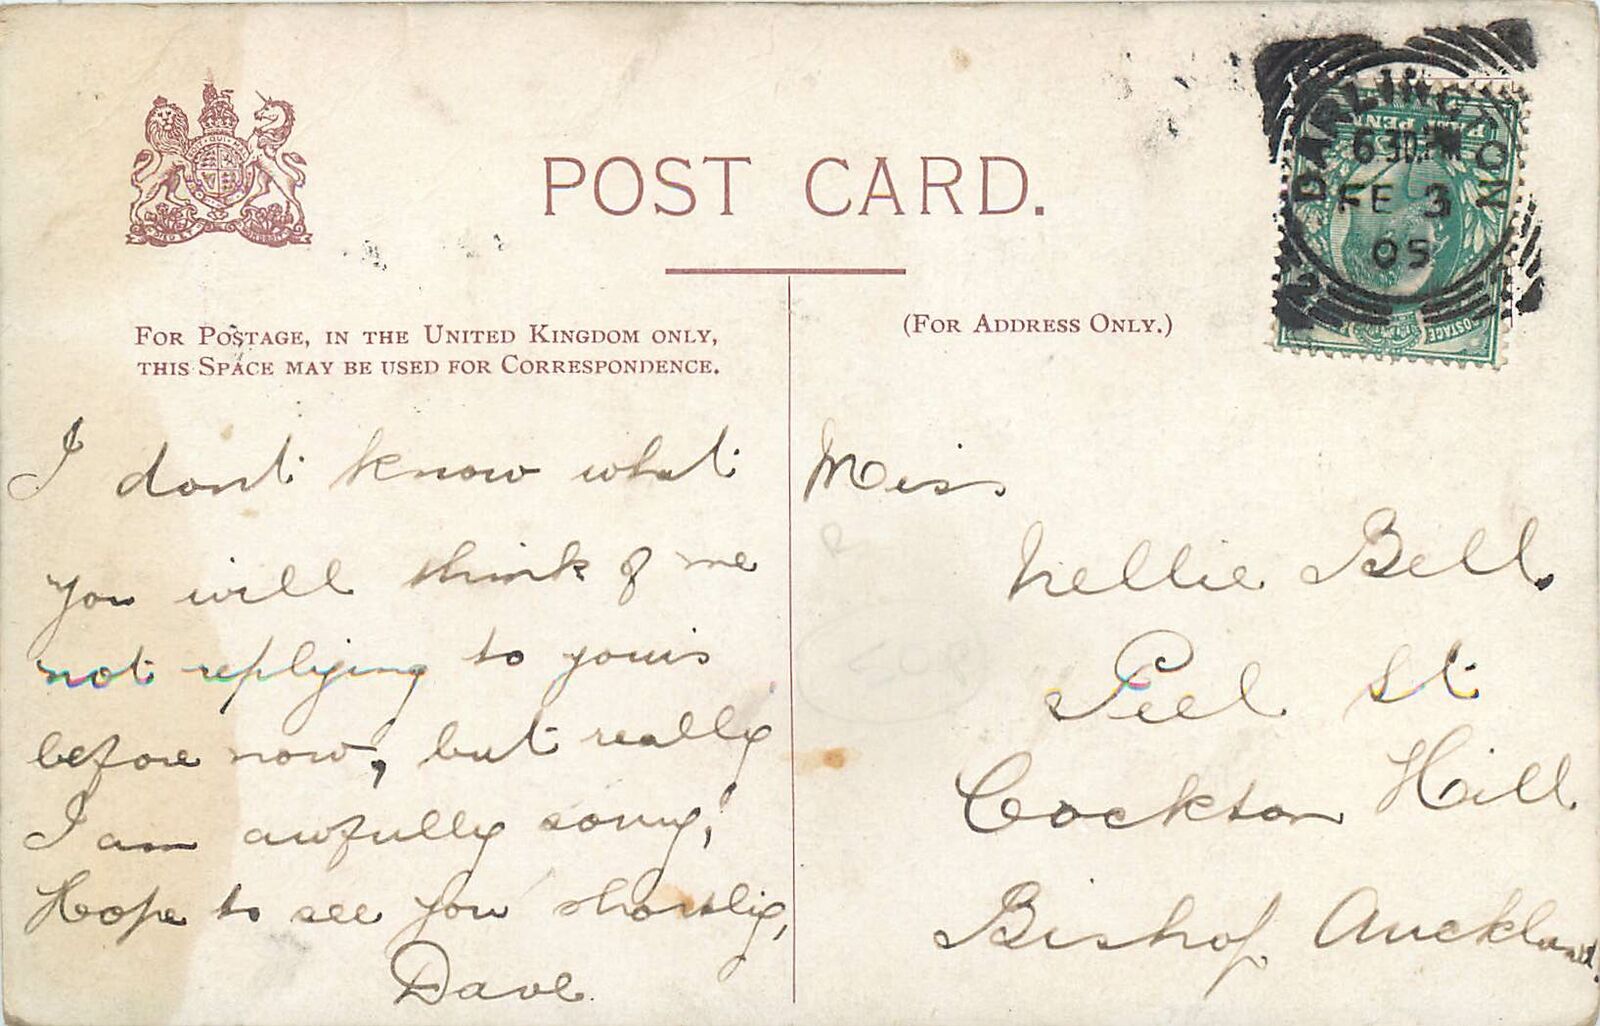 POST CARD.
FOR POSTAGE, IN THE UNITED KINGDOM ONLY,
THIS SPACE MAY BE USED FOR CORRESPONDENCE.
(FOR ADDRESS ONLY.)
DARLINGTON
6 30 PM
FE 3
05
2
HALF PENNY
POSTAGE
I dont know what
you will think of me
not replying to yours
before now, but really
I am awfully sorry,
Hope to see you shortly,
Dave
Miss
Nellie Bell.
Peel St
Cockton Hill
Bishop Auckland.